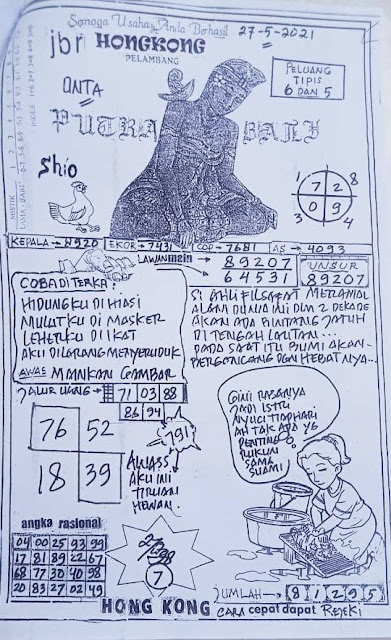 Semoga Usaha Anda Berhasil
27-5-2021
jbr HONGKONG
PELAMBANG
PELUANG
TIPIS
6 DAN 5
ONTA
PUTRA BALI
Shio
1 7 2 8
0 9 4
MISTIK
LAMA
BARU
INDEX
KEPALA → 4920
EKOR → 7431
COP → 7681
AS → 4093
LAWAN main
89207
64531
UNSUR
89207
COBA DITERKA?
HIDUNGKU DI HIASI
MULUTKU DI MASKER
LEHERKU DI IKAT
AKU DILARANG MENYERUDUK
AWAS MAINKAN GAMBAR
SI AHLI FILSAFAT MERAMAL
ALAM DUNIA INI DLM 2 DEKADE
AKAN ADA BINTANG JATUH
DI TENGAH LAUTAN...
PADA SAAT ITU BUMI AKAN
BERGONCANG DGN HEBATNYA...
JALUR UANG
71 03 88
86 94
76 52
18 39
791
AWASS
AKU INI
TIRUAN
HEWAN
GINI RASANYA
JADI ISTRI
NYUCI TIAP HARI
AH TAK APA YG
PENTING
RUKUN
SAMA
SUAMI
angka rasional
04 00 25 93 99
17 81 89 22 67
68 77 30 40 98
20 83 27 02 49
7
HONG KONG
JUMLAH → 8 1 2 9 5
CARA cepat dapat REJEKI